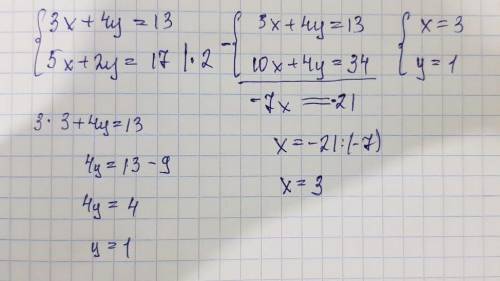 3x+4y=13
5x+2y=17 |·2
- 3x+4y=13
10x+4y=34
-7x=-21
x=-21:(-7)
x=3
3·3+4y=13
4y=13-9
4y=4
y=1
x=3
y=1